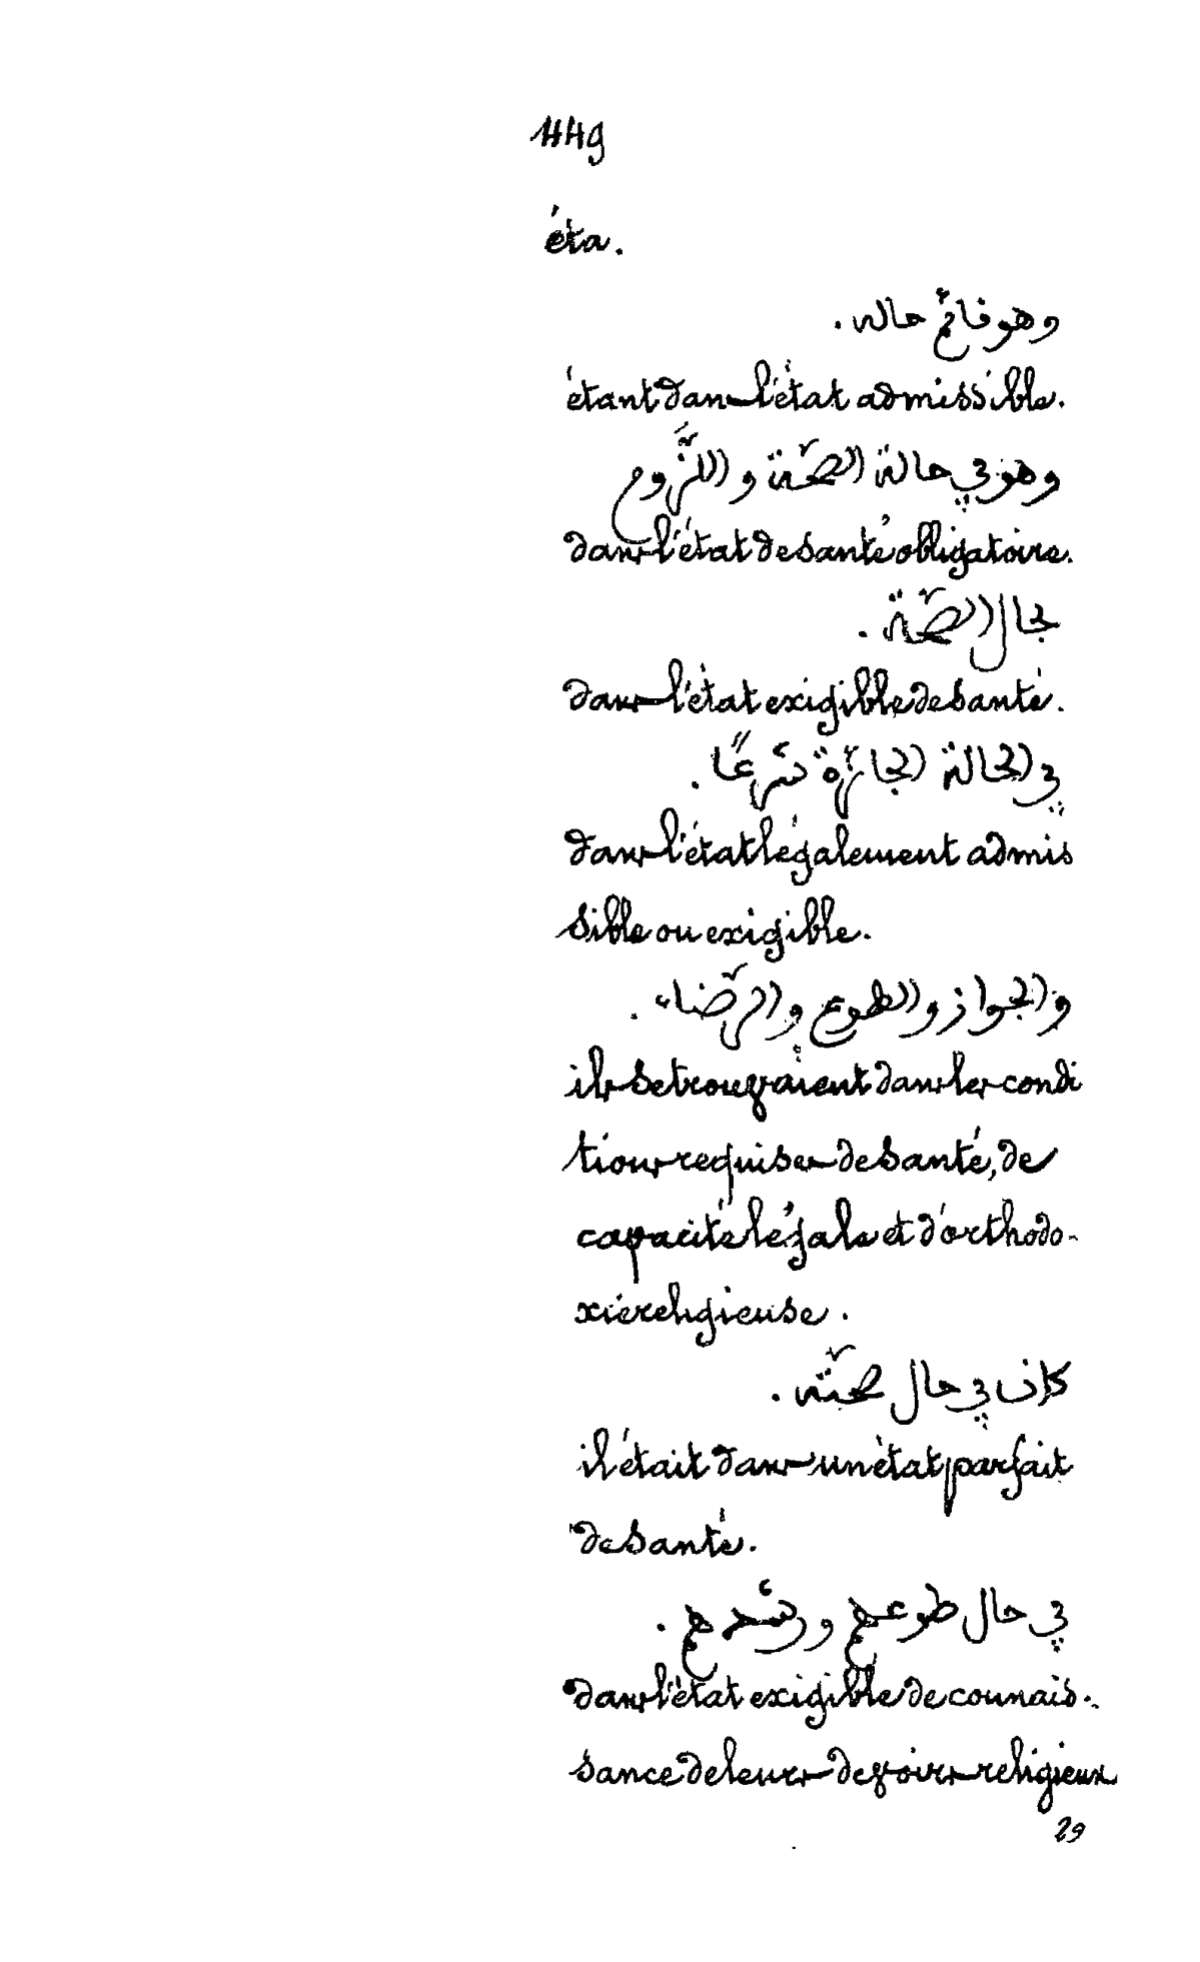 449
éta.
وهو قائم حاله.
étant dans l'état admissible.
وهو في حالة الصّحة واللّزوم
dans l'état de santé obligatoire.
بحال الصّحة.
dans l'état exigible de santé.
في الحالة الجائزة شرعًا.
dans l'état légalement admis
sible ou exigible.
والجواز والطوع والرّضاء.
ils se trouvaient dans les condi
tions requises de santé, de
capacité légale et d'orthodo-
xie religieuse.
كان في حال صحّته.
il était dans un état parfait
de santé.
في حال طوعهم ورشدهم.
dans l'état exigible de connais-
sance de leurs devoirs religieux
29